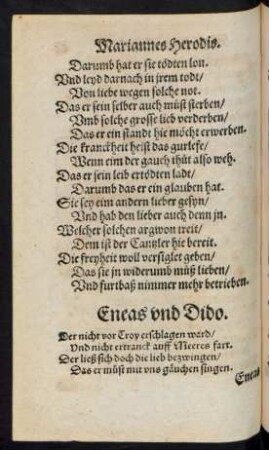 Mariannes Herodis.
Darumb hat er sie tödten lon.
Vnd leyd darnach in jrem todt/
Von liebe wegen solche not.
Das er sein selber auch müst sterben/
Vmb solche grosse lieb verderben/
Das er ein standt hie möcht erwerben.
Die kranckheit heist das gurlese/
Wenn eim der gauch thůt also weh.
Das er sein leib ertödten ladt/
Darumb das er ein glauben hat.
Sie sey eim andern lieber gesyn/
Vnd hab den lieber auch denn jn.
Welcher solchen argwon treit/
Dem ist der Cantzler hie bereit.
Die freyheit woll versiglet geben/
Das sie jn widerumb müß lieben/
Vnd furtbaß nimmer mehr betrieben.
Eneas vnd Dido.
Der nicht vor Troy erschlagen ward/
Vnd nicht ertranck auff Meeres fart.
Der ließ sich doch die lieb bezwingen/
Das er müst mit vns gäuchen singen.
Eneas